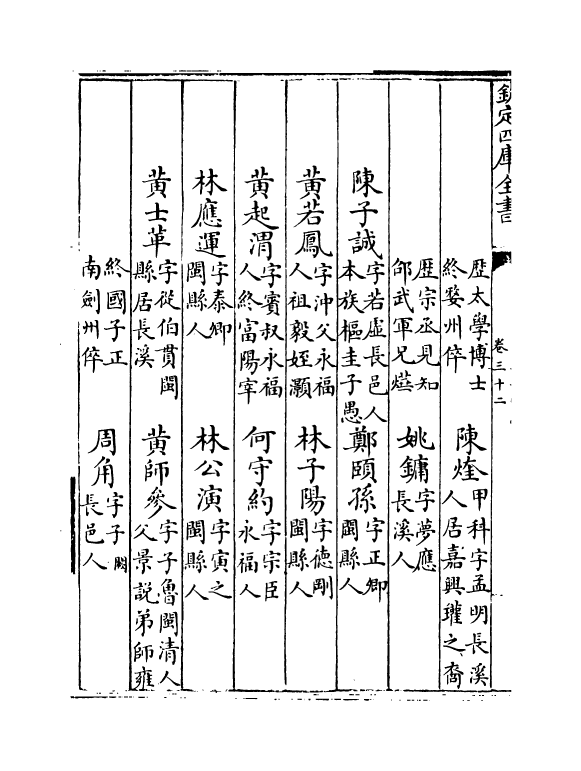 欽定四庫全書
卷三十二
歴太學博士
終婺州倅
陳煃
甲科字孟明長溪
人居嘉興瓘之裔
歴宗丞見知
邵武軍兄
姚鏞
字夢應
長溪人
陳子誠
字若虚長邑人
本族樞圭子愚
鄭頤孫
字正卿
閩縣人
黄若鳳
字沖父永福
人祖毅姪灝
林子陽
字德剛
閩縣人
黄起渭
字賓叔永福
人終富陽宰
何守約
字宗臣
永福人
林應運
字泰卿
閩縣人
林公演
字寅之
閩縣人
黄士革
字從伯貫閩
縣居長溪
黄師參
字子魯閩清人
父景説弟師雍
終國子正
南劍州倅
周角
字子闕
長邑人